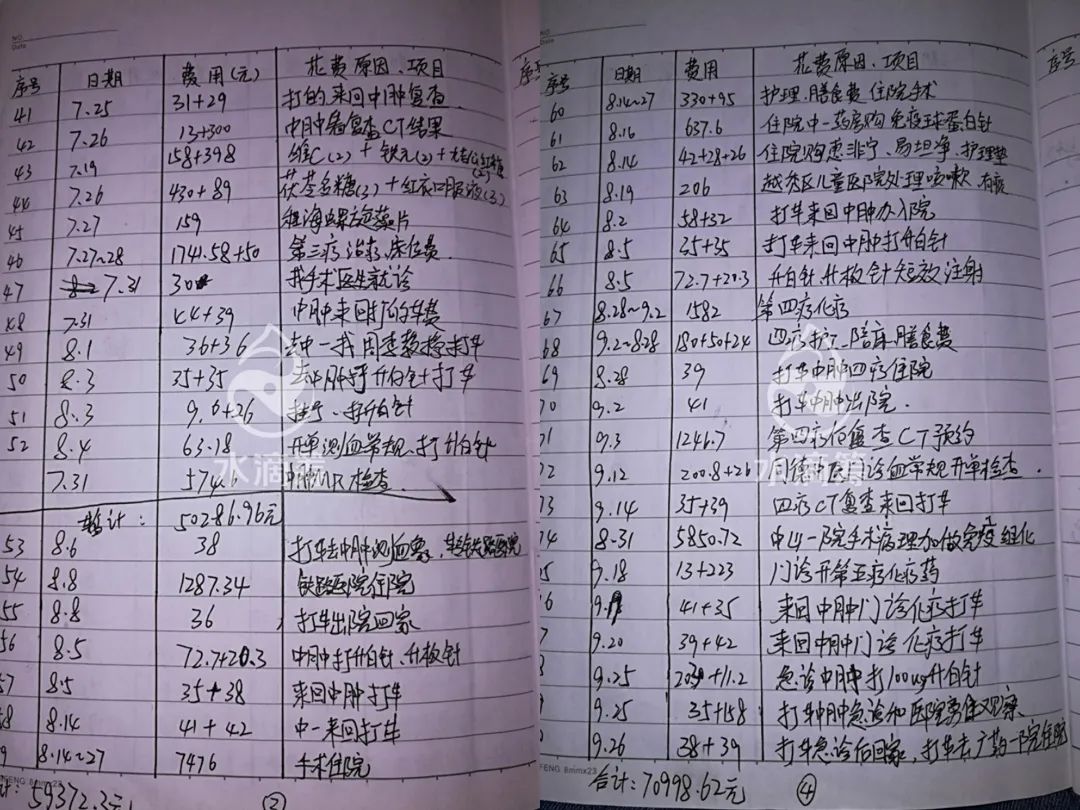 NO.
Date
序号 日期 费用(元) 花费原因、项目
41 7.25 31+29 打的来回中肿复查
42 7.26 13+300 中肿中 复查CT结果
43 7.19 158+398 维C(2)+铁元(2)+
44 7.26 430+89 茯苓多糖(3)+红衣口服液(3)
45 7.27 159 海螺旋藻片
46 7.27.28 1741.58+50 第三疗治疗、床位费
47 7.31 30 找手术医生就诊
48 7.31 44+39 中肿来回打的车费
49 8.1 36+36 去中一找周李教授打车
50 8.3 35+35 去中肿打升白针打车
51 8.3 9.6+26 挂号、打升白针
52 8.4 63.18 开单测血常规、打升白针
7.31 574.6 中肿MR检查
暂计: 50286.96元
53 8.6 38 打车去中肿测血象,转铁路医院
54 8.8 1287.34 铁路医院住院
55 8.8 36 打车出院回家
56 8.5 72.7+20.3 中肿打升白针、升板针
57 8.5 35+38 来回中肿打车
58 8.14 41+42 中一来回打车
59 8.14~27 7476 手术住院
FENG 8mmx23
计:59372.3元
②
NO.
Date
序号 日期 费用 花费原因、项目
60 8.14~27 330+95 护理、膳食费 住院手术
61 8.16 637.6 住院中一药房购免疫球蛋白针
62 8.14 42+28+26 住院购惠非宁、易坦净、护理垫
63 8.19 206 越秀区儿童医院处理咳嗽、有痰
64 8.2 58+32 打车来回中肿办入院
65 8.5 35+35 打车来回中肿打升白针
66 8.5 72.7+20.3 升白针、升板针短效注射
67 8.28~9.2 1582 第四疗化疗
68 9.2~8.28 180+50+24 四疗护工、陪床、膳食费
69 8.28 39 打车中肿四疗住院
70 9.2 41 打车中肿出院.
71 9.3 1246.7 第四疗后复查CT预约
72 9.12 200.8+26 同德中医门诊血常规开单检查.
73 9.14 35+39 四疗CT复查来回打车
74 8.31 5850.72 中山一院手术病理加做免疫组化
75 9.18 13+223 门诊开第五疗化疗药
76 41+35 来回中肿门诊化疗打车
77 9.20 39+42 来回中肿门诊化疗打车
9.25 209+11.2 急诊中肿打100ug升白针
9.25 35+158 打车中肿急诊和医院旁住观察
9.26 38+39 打车急诊后回家,打车去广药一院住院
FENG 8mmx23
合计:70998.62元
④
水滴筹
水滴筹